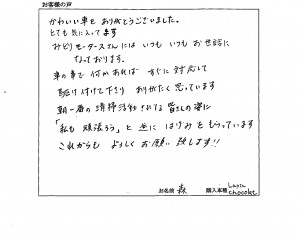 お客様の声
かわいい車を ありがとうございました。
とても気に入ってます
みどりモータースさんには いつも いつも お世話に
なっております。
車の事で 何かあれば すぐに 対応して
駆け付けて下さり ありがたく 思っています
朝一番の 清掃活動されてる 皆さんの姿に
「私も 頑張ろう」と 逆に はげみを もらっています
これからも よろしく お願い 致します!!
お名前 森 購入車種 Lapin
chocolat